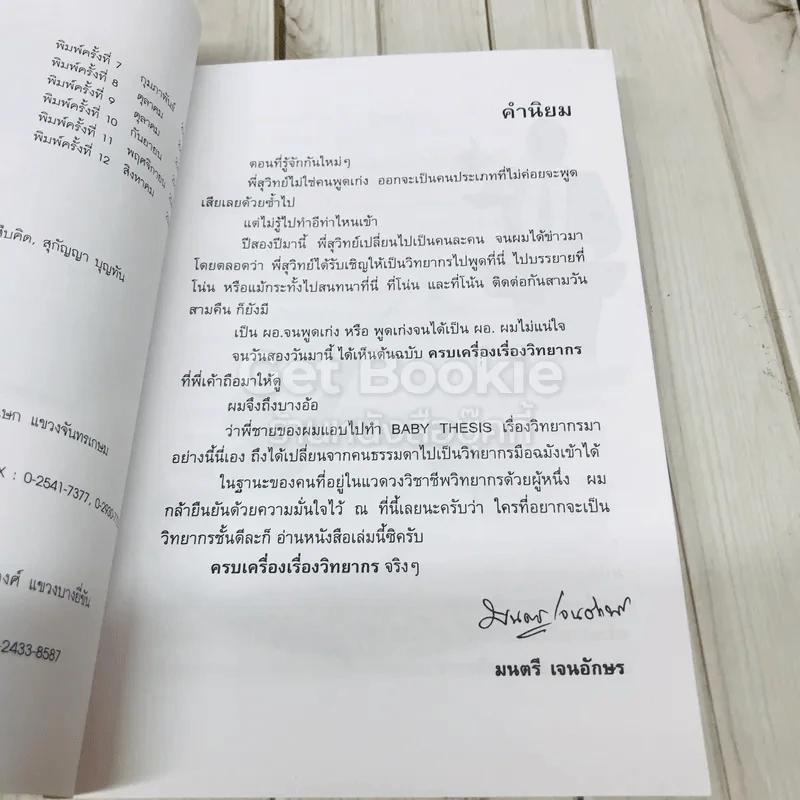 พิมพ์ครั้งที่ 7 กุมภาพันธ์
พิมพ์ครั้งที่ 8 ตุลาคม
พิมพ์ครั้งที่ 9 ตุลาคม
พิมพ์ครั้งที่ 10 กันยายน
พิมพ์ครั้งที่ 11 พฤศจิกายน
พิมพ์ครั้งที่ 12 สิงหาคม
สืบคิด, สุกัญญา บุญทัน
แขวงจันทรเกษม
X : 0-2541-7377,
แขวงบางยี่ขัน
-2433-8587
คำนิยม
ตอนที่รู้จักกันใหม่ๆ
พี่สุวิทย์ไม่ใช่คนพูดเก่ง ออกจะเป็นคนประเภทที่ไม่ค่อยจะพูด
เสียเลยด้วยซ้ำไป
แต่ไม่รู้ไปทำอีท่าไหนเข้า
ปีสองปีมานี้ พี่สุวิทย์เปลี่ยนไปเป็นคนละคน จนผมได้ข่าวมา
โดยตลอดว่า พี่สุวิทย์ได้รับเชิญให้เป็นวิทยากรไปพูดที่นี่ ไปบรรยายที่
โน่น หรือแม้กระทั้งไปสนทนาที่นี่ ที่โน่น และที่โน้น ติดต่อกันสามวัน
สามคืน ก็ยังมี
เป็น ผอ.จนพูดเก่ง หรือ พูดเก่งจนได้เป็น ผอ. ผมไม่แน่ใจ
จนวันสองวันมานี้ ได้เห็นต้นฉบับ ครบเครื่องเรื่องวิทยากร
ที่พี่เค้าถือมาให้ดู
Get Bookie
ร้านหนังสือบุ๊คกี้
ผมจึงถึงบางอ้อ
ว่าพี่ชายของผมแอบไปทำ BABY THESIS เรื่องวิทยากรมา
อย่างนี้นี่เอง ถึงได้เปลี่ยนจากคนธรรมดาไปเป็นวิทยากรมือฉมังเข้าได้
ในฐานะของคนที่อยู่ในแวดวงวิชาชีพวิทยากรด้วยผู้หนึ่ง ผม
กล้ายืนยันด้วยความมั่นใจไว้ ณ ที่นี้เลยนะครับว่า ใครที่อยากจะเป็น
วิทยากรชั้นดีละก็ อ่านหนังสือเล่มนี้ซิครับ
ครบเครื่องเรื่องวิทยากร จริงๆ
มนตรี เจนอักษร